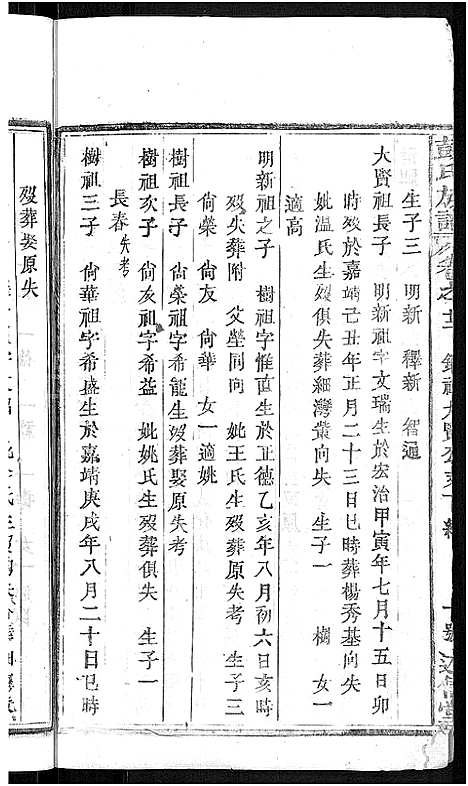 彭氏族譜
生子三 明新 釋新 智通
大賢祖長子 明新祖字文瑞生於宏治甲寅年七月十五日卯
時歿於嘉靖己丑年正月二十三日巳時葬楊秀基向失
妣溫氏生歿俱失葬細灣黨向失 生子一 樹 女一
適高
明新祖之子 樹祖字惟直生於正德乙亥年八月初六日亥時
歿失葬附 父塋同向 妣王氏生歿葬原失考 生子三
尚榮 尚友 尚華 女一適姚
樹祖長子 尚榮祖字希龍生歿葬娶原失考
樹祖次子 尚友祖字希益 妣姚氏生歿葬俱失 生子一
長春失考
樹祖三子 尚華祖字希盛生於嘉靖庚戌年八月二十日巳時
歿葬娶原失